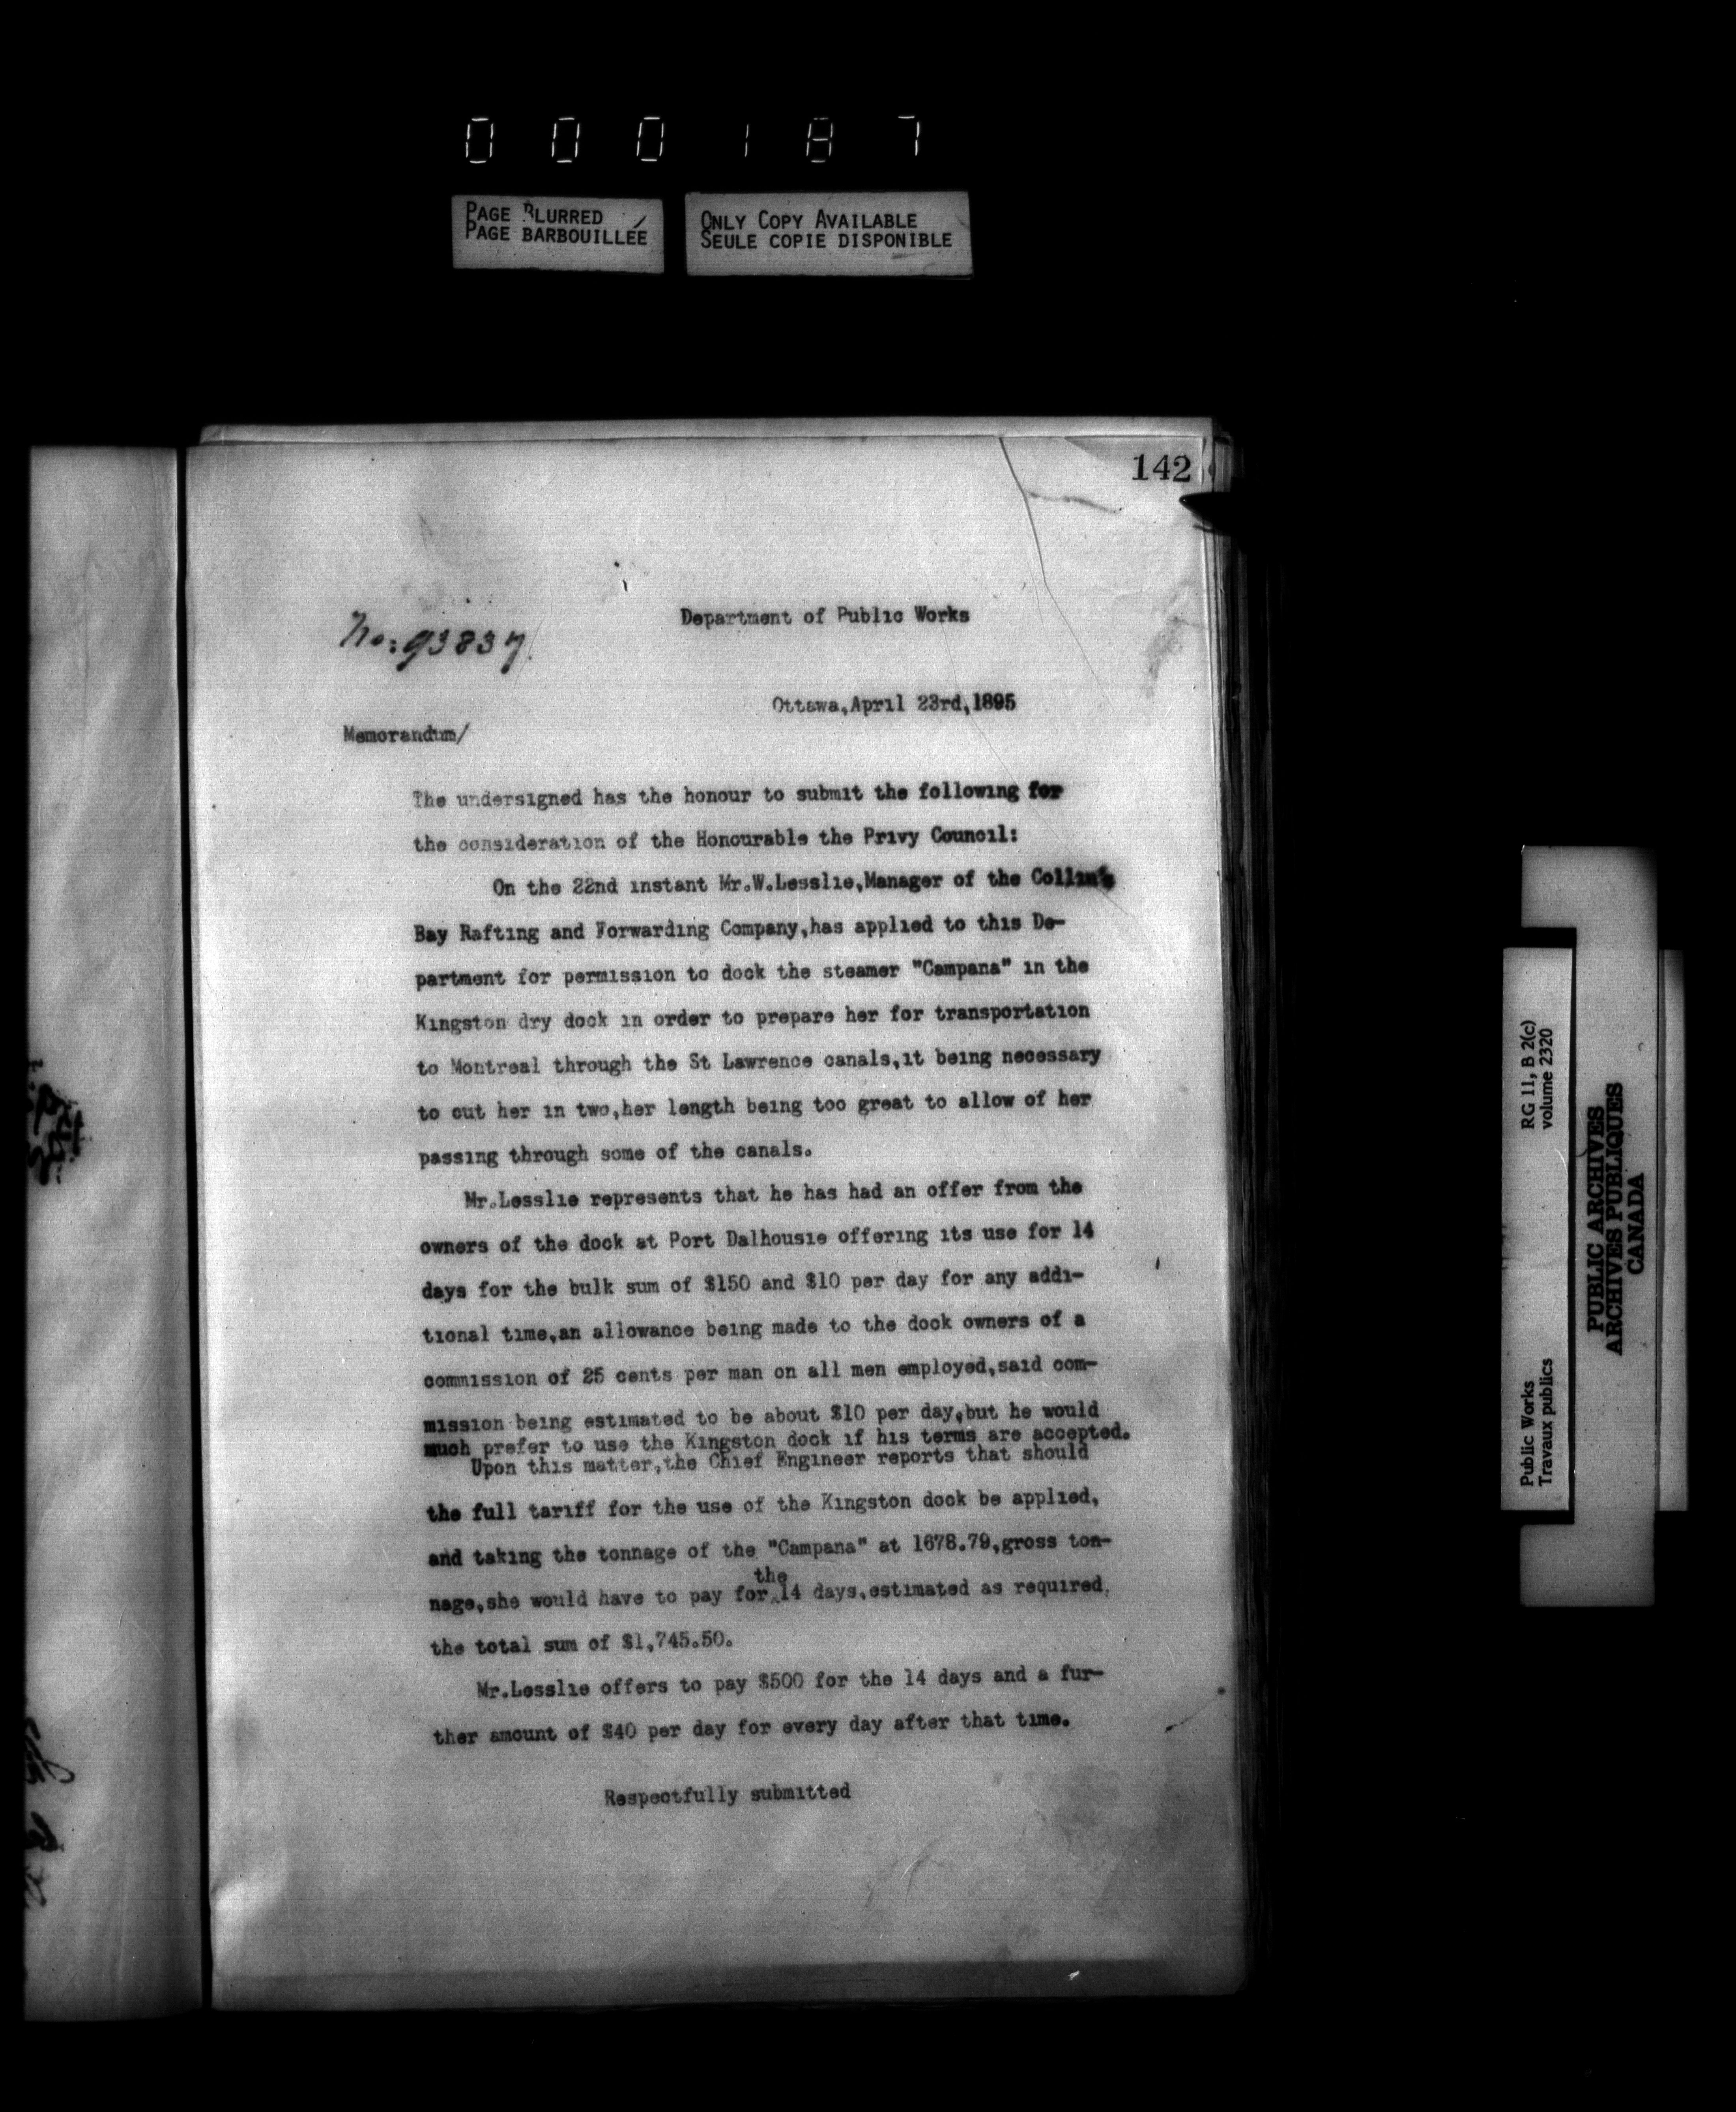 000187
PAGE BLURRED
PAGE BARBOUILLÉE
ONLY COPY AVAILABLE
SEULE COPIE DISPONIBLE
142
No: 93837
Department of Public Works
Ottawa,April 23rd,1895
Memorandum/
The undersigned has the honour to submit the following for
the consideration of the Honourable the Privy Council:
On the 22nd instant Mr.W.Lesslie,Manager of the Collin's
Bay Rafting and Forwarding Company,has applied to this De-
partment for permission to dock the steamer "Campana" in the
Kingston dry dock in order to prepare her for transportation
to Montreal through the St Lawrence canals,it being necessary
to cut her in two,her length being too great to allow of her
passing through some of the canals.
Mr.Lesslie represents that he has had an offer from the
owners of the dock at Port Dalhousie offering its use for 14
days for the bulk sum of $150 and $10 per day for any addi-
tional time,an allowance being made to the dock owners of a
commission of 25 cents per man on all men employed,said com-
mission being estimated to be about $10 per day,but he would
much prefer to use the Kingston dock if his terms are accepted.
Upon this matter,the Chief Engineer reports that should
the full tariff for the use of the Kingston dock be applied,
and taking the tonnage of the "Campana" at 1678.79,gross ton-
the
nage,she would have to pay for 14 days,estimated as required,
the total sum of $1,745.50.
Mr.Lesslie offers to pay $500 for the 14 days and a fur-
ther amount of $40 per day for every day after that time.
Respectfully submitted
Public Works
Travaux publics
RG 11, B 2(c)
volume 2320
PUBLIC ARCHIVES
ARCHIVES PUBLIQUES
CANADA